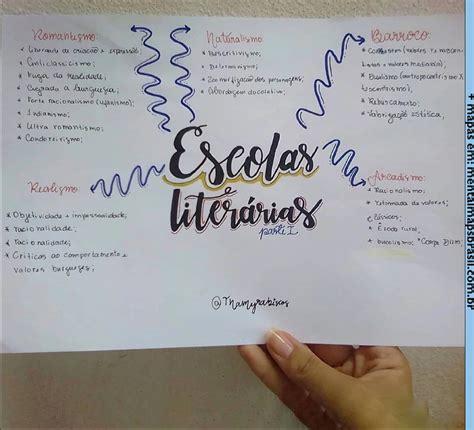 Romantismo:
* Liberdade de criação e expressão;
* Anticlassicismo;
* Fuga da realidade;
* Chegada a burguesia;
* Forte nacionalismo (ufanismo);
* Indianismo;
* Ultra romantismo;
* Condoreirismo;
Naturalismo:
* Descritivismo;
* Determinismo;
* Zoomorfização dos personagens;
* Abordagem do coletivo;
Barroco:
* (valores renascen-
tistas e valores medievais);
* Dualismo (antropocentrismo x
teocentrismo);
* Rebuscamento;
* Valorização estética;
Escolas
literárias
parte I
Realismo:
* Objetividade e impessoalidade;
* racionalidade;
* Racionalidade;
* Críticas ao comportamento e
valores burgueses;
Arcadismo:
* Racionalismo;
* Retomada de valores
clássicos;
* Êxodo rural;
* bucolismo:
+ mapas em: mentalmapsbrasil.com.br